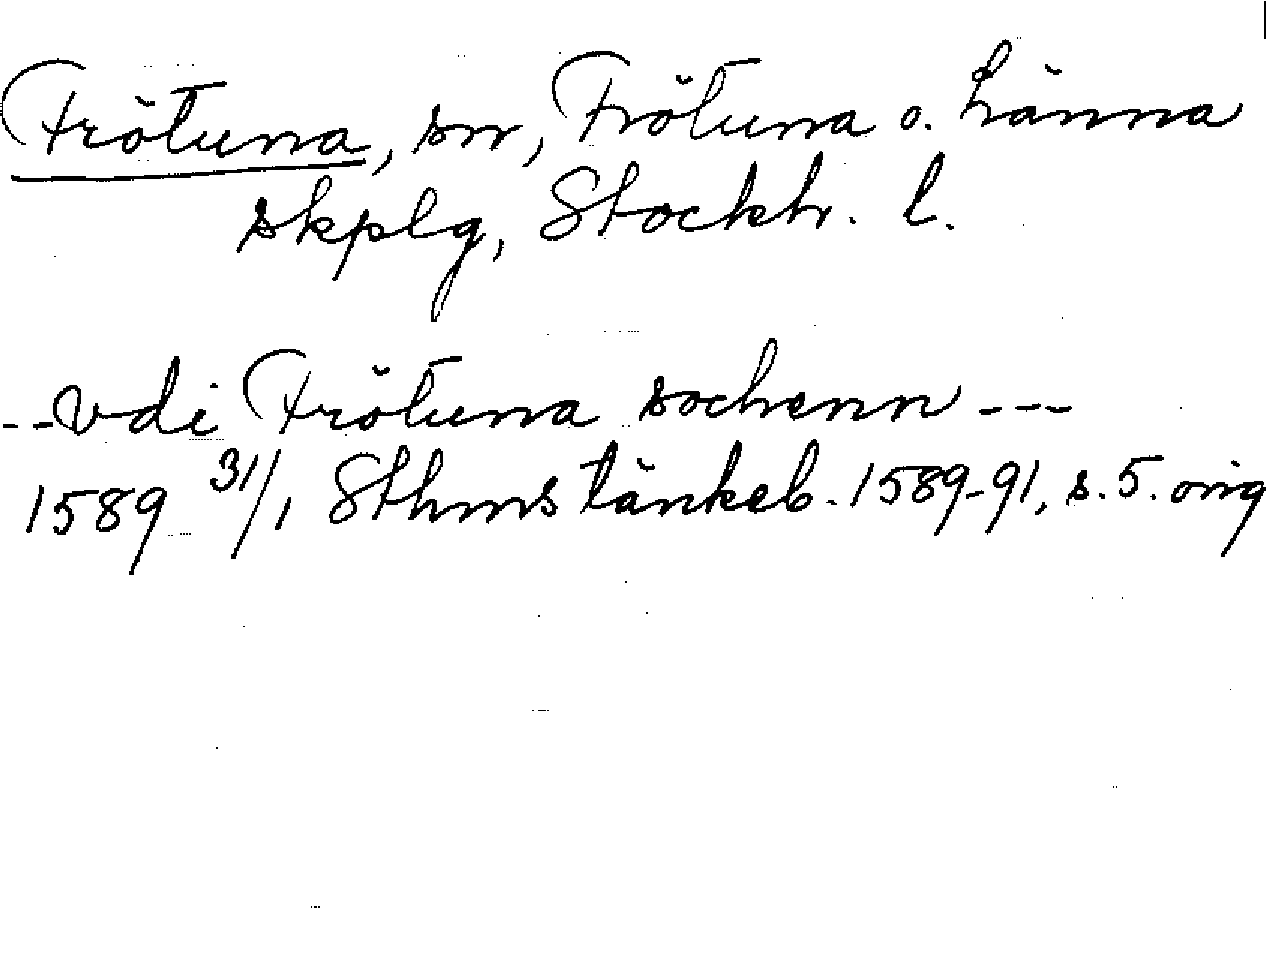 Frötuna, sn, Frötuna o. Länna
skplg, Stockh. l.
--vdi Frötuna sochenn---
1589 31/1 Sthms tänkeb. 1589-91, s. 5. orig